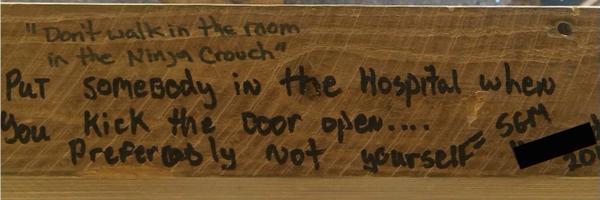 "Don't walk in the room
in the Ninja Crouch"
Put somebody in the Hospital when
You kick the door open....
Preferably not yourself" SGM
20